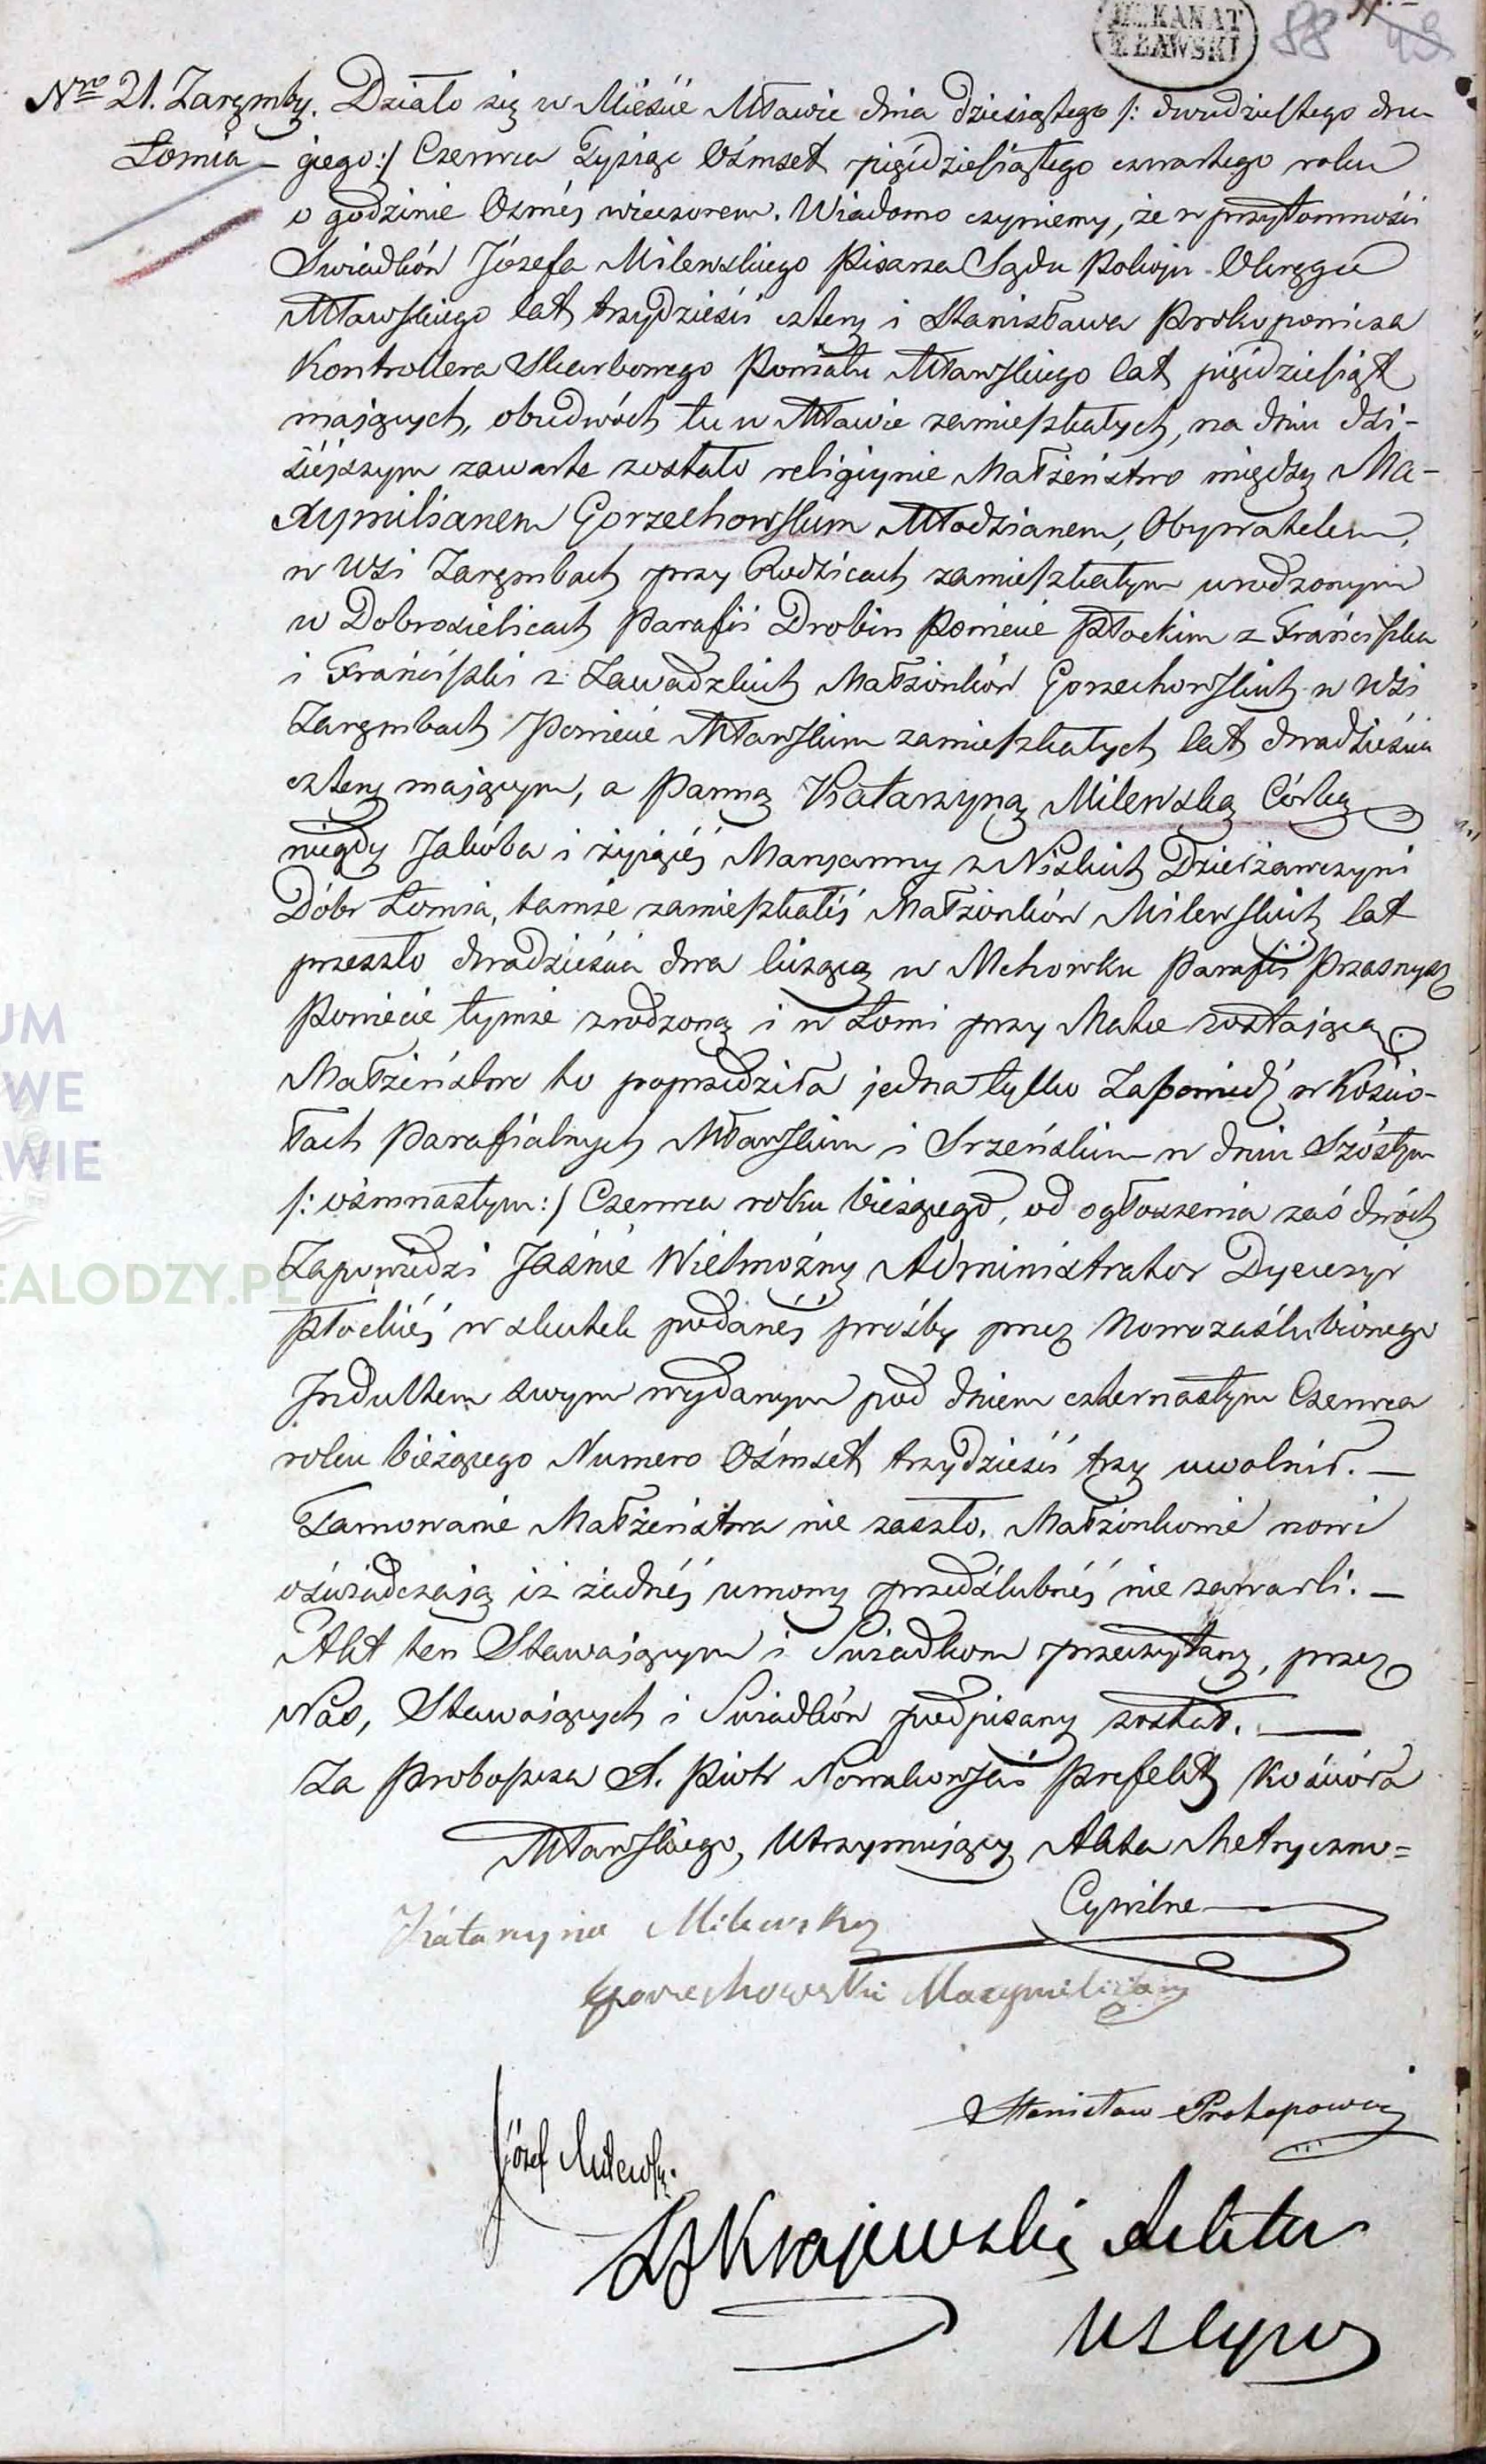 DEKANAT
MŁAWSKI
88
Nro 21. Zaręmby. Działo się w Mieście Mławie dnia dziesiątego /: dwudziestego dru-
Łomia - giego :/ Czerwca Tysiąc Ośmset pięćdziesiątego czwartego roku
o godzinie Osmej wieczorem. Wiadomo czyniemy, że w przytomności
Świadków Józefa Milewskiego Pisarza Sądu Pokoju Okręgu
Mławskiego lat trzydzieści cztery i Stanisława Prokopowicza
Kontrollera Skarbowego Powiatu Mławskiego lat pięćdziesiąt
mających, obudwóch tu w Mławie zamieszkałych, na dniu dzi-
siéjszym zawarte zostało religiynie Małżeństwo między Ma-
xymilianem Gorzechowskim Młodzianem, Obywatelem,
w Wsi Zarembach przy Rodzicach zamieszkałym urodzonym
w Dobrosielicach Parafii Drobin Powiecie Płockim z Franciszka
i Franciszki z Zawadzkich Małżonków Gorzechowskich w Wsi
Zarembach Powiecie Mławskim zamieszkałych lat dwadzieścia
cztery mającym, a Panną Katarzyną Milewską Córką
niegdy Jakóba i żyjącéj Maryanny z Niskich Dzierżawczyni
Dóbr Łomia, tamże zamieszkałéj Małżonków Milewskich lat
przeszło dwadzieścia dwa liczącą w Mchowku Parafii Przasnysz
Powiecie tymże zrodzoną i w Łomi przy Matce zostającą.
Małżeństwo to poprzedziła jedna tylko Zapowiedź w Kościo-
łach Parafialnych Mławskim i Srzeńskim w dniu Szóstym
/: ośmnastym :/ Czerwca roku bieżącego, od ogłoszenia zaś dwóch
Zapowiedzi Jaśnie Wielmożny Administrator Dyecezyi
Płockiéj w skutek podanéj prośby przez Nowozaślubionego
Indultem swym wydanym pod dniem czternastym Czerwca
roku bieżącego Numero Ośmset trzydzieści trzy uwolnił. —
Tamowanie Małżeństwa nie zaszło. Małżonkowie nowi
oświadczają iż żadnéj umowy przedślubnéj nie zawarli. —
Akt ten Stawającym i Świadkom przeczytany, przez
Nas, Stawających i Świadków podpisany został. —
Za Proboszcza X. Piotr Nowakowski Prefekt Kościoła
Mławskiego, Utrzymujący Akta Metryczno=
Cywilne
Katarzyna Milewska
Gorzechowski Maxymilian
Stanisław Prokopowicz
Józef Milewski
Krajewski
UM
WE
WIE
EALODZY.PL